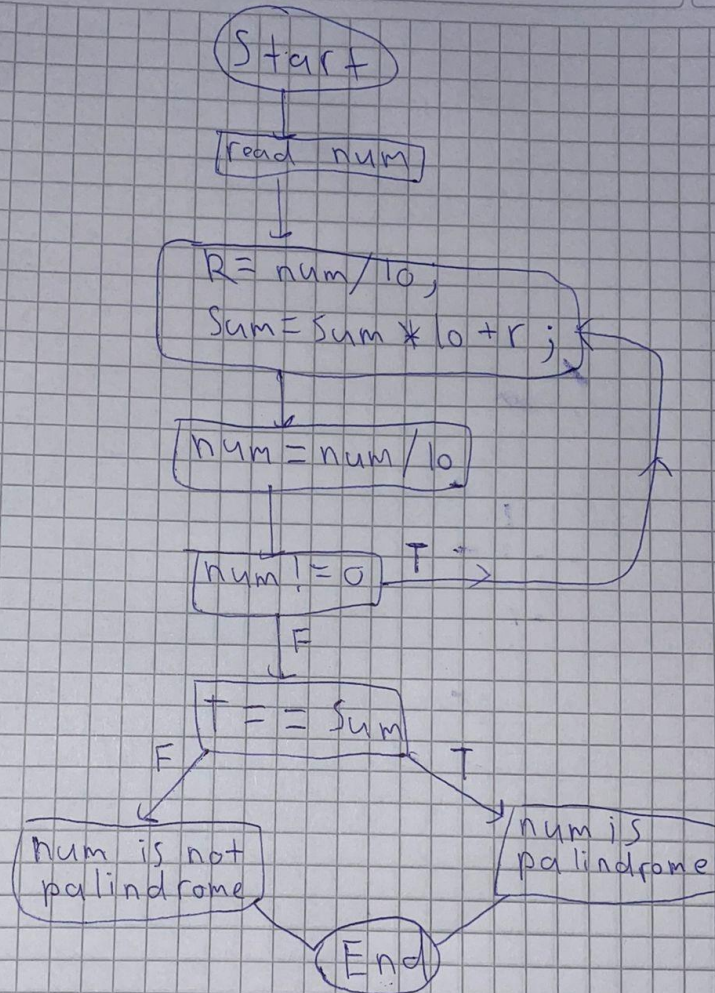 Start
read num
R= num/10;
Sum=Sum*10+r;
num=num/10
num!=0
T
F
t==Sum
F
T
num is not
palindrome
num is
palindrome
End